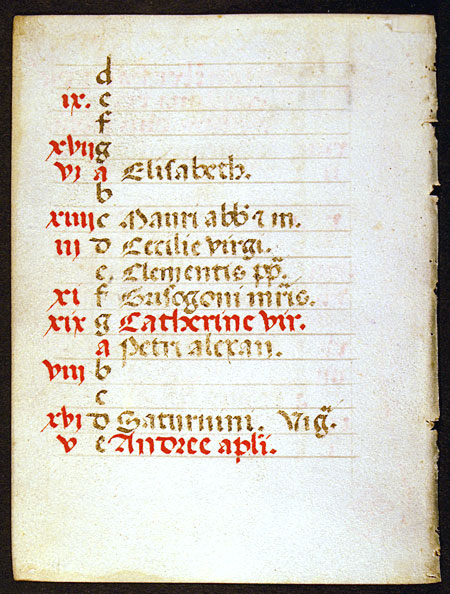 d
ix. e
f
xvii g
vi a Elisabeth.
b
xiiii c Mauri abb⁊ m.
iii d Cecilie virgi.
e Clementis pp.
xi f Grisogoni mr̄is.
xix g Catherine vir.
a Petri alexan.
viii b
c
xvi d Saturnini. Vig.
v e Andree apli.